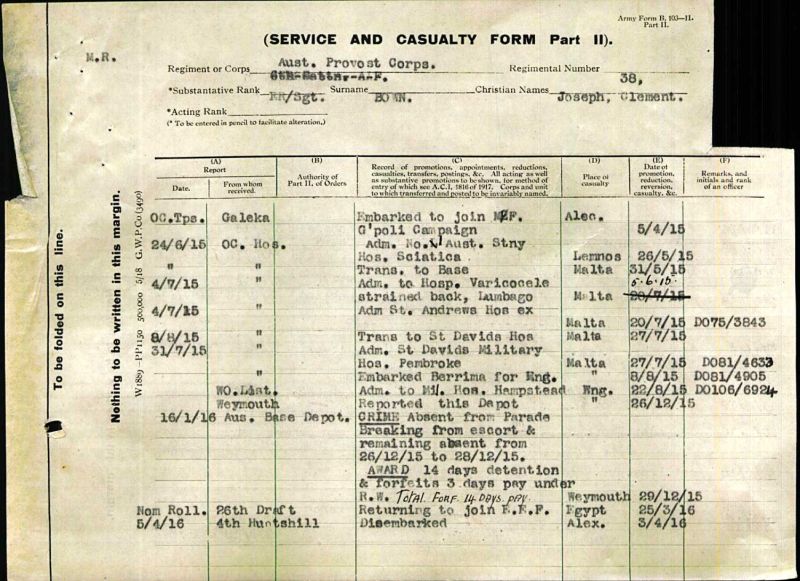 Army Form B. 103—II.
Part II.
(SERVICE AND CASUALTY FORM Part II).
M.R.
Regiment or Corps Aust. Provost Corps.
6th Battn. A.F. Regimental Number 38,
*Substantive Rank ER/Sgt. Surname BOWN. Christian Names Joseph, Clement.
*Acting Rank
(* To be entered in pencil to facilitate alteration.)
To be folded on this line.
Nothing to be written in this margin.
W1889—PP1150 500,000 5/18 G.W.P.Co (3490)
(A) (B) (C) (D) (E) (F)
Report Date. From whom received. Authority of Part II. of Orders Record of promotions, appointments, reductions, casualties, transfers, postings, &c. All acting as well as substantive promotions to be shown, for method of entry of which see A.C.I. 1816 of 1917. Corps and unit to which transferred and posted to be invariably named. Place of casualty Date of promotion, reduction, reversion, casualty, &c. Remarks, and initials and rank of an officer
OC.Tps. Galeka Embarked to join MEF. Alec.
G'poli Campaign 5/4/15
24/6/15 OC. Hos. Adm. No.1 Aust. Stny
Hos. Sciatica Lemnos 26/5/15
" " Trans. to Base Malta 31/5/15
4/7/15 " Adm. to Hosp. Varicocele 5.6.15.
strained back, Lumbago Malta 20/7/15
4/7/15 " Adm St. Andrews Hos ex
Malta 20/7/15 D075/3843
8/8/15 " Trans to St Davids Hos Malta 27/7/15
31/7/15 Adm. St Davids Military
" Hos. Pembroke Malta 27/7/15 D081/4633
Embarked Berrima for Eng. " 8/8/15 D081/4905
WO.List. Adm. to Mil. Hos. Hampstead Eng. 22/8/15 D0106/6924
Weymouth Reported this Depot " 26/12/15
16/1/16 Aus. Base Depot. CRIME Absent from Parade
Breaking from escort &
remaining absent from
26/12/15 to 28/12/15.
AWARD 14 days detention
& forfeits 3 days pay under
R.W. Total Forf. 14 Days pay. Weymouth 29/12/15
Nom Roll. 26th Draft Returning to join E.E.F. Egypt 25/3/16
5/4/16 4th Huntshill Disembarked Alex. 3/4/16